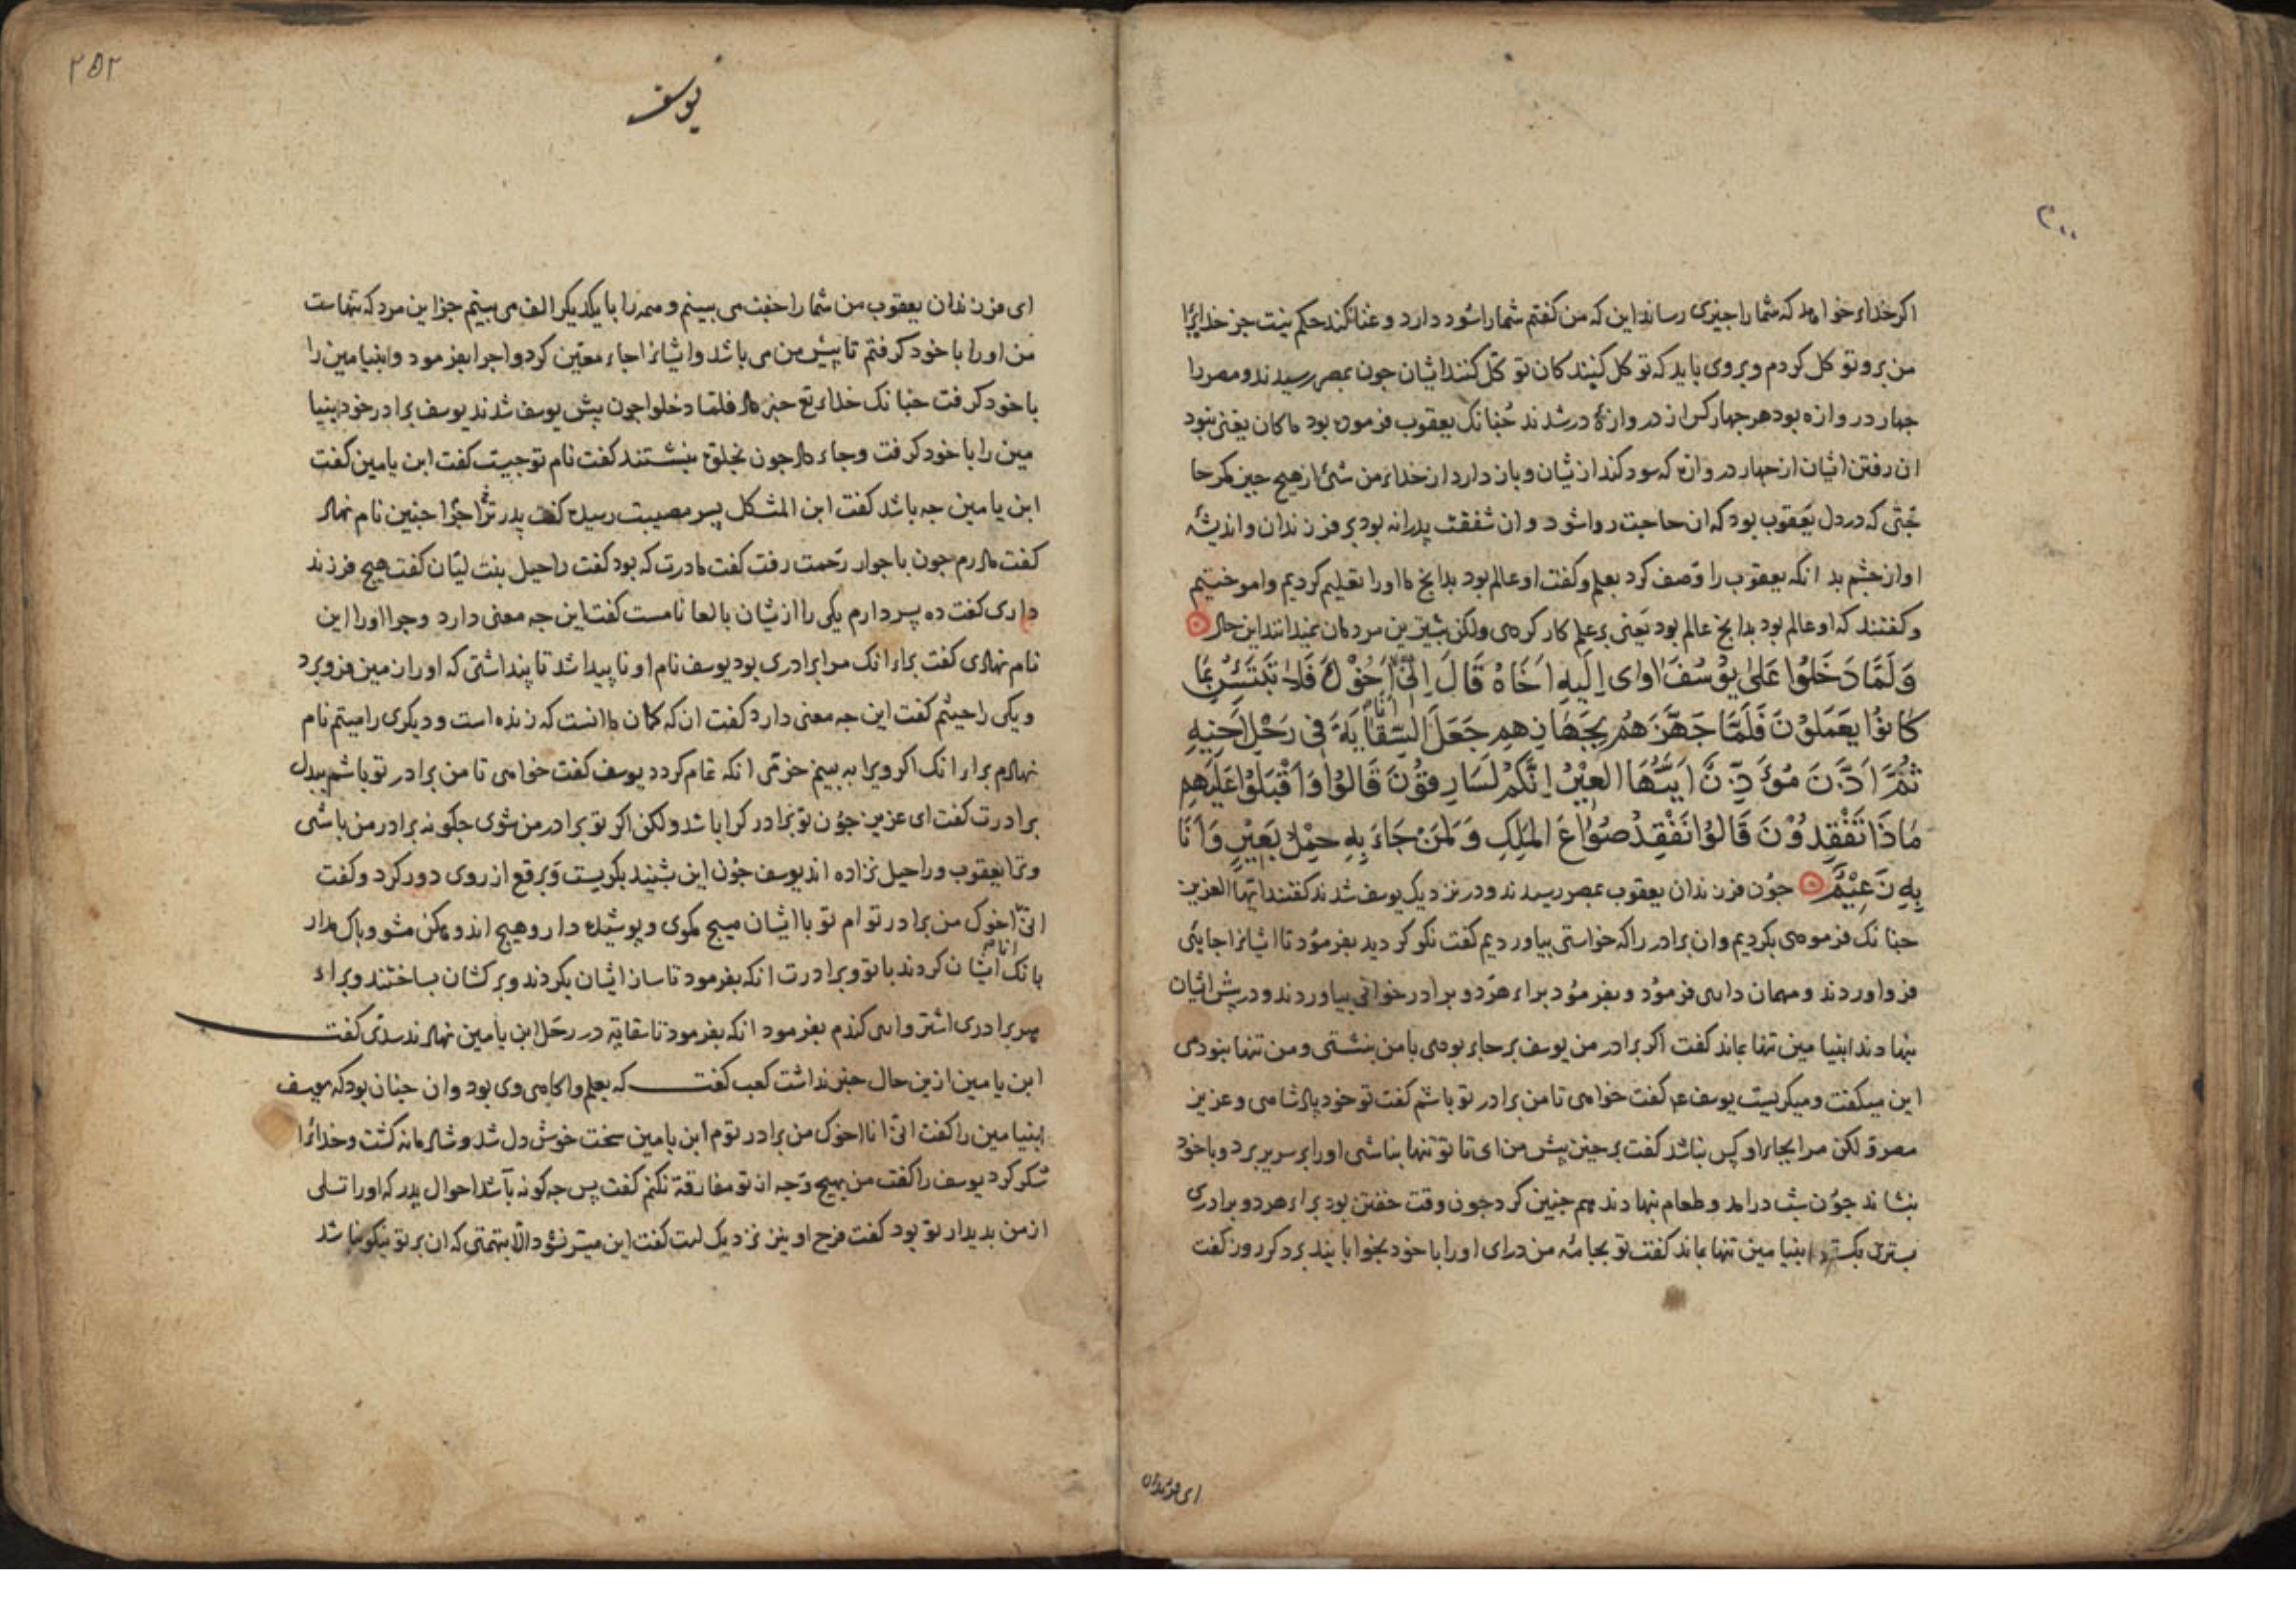 ۳۰۰
اکر خداء خواهد که شما را چیزی رساند این که من کفتم شما را سود دارد و غنا نکند حکم نیست جز خدایرا
من برو توکل کردم و بروی باید که توکل کنند کان توکل کنند ایشان جون بمصر رسیدند و مصر را
جهار دروازه بود هر جهار کس از دروازۀ درشدند جنانک یعقوب فرموده بود ما کان یغنی نبود
ان رفتن ایشان از جهار دروازه که سود کند ازیشان و باز دارد از خداء من شیٔ از هیج جیز مکر حا
جتی که در دل یعقوب بود که ان حاجت روا شود و ان شفقت پدرانه بود بر فرزندان و اندیشۀ
او از جشم بد انکه یعقوب را وصف کرد بعلم و کفت او عالم بود بدانج ما اورا تعلیم کردیم واموختیم
و کفتند که او عالم بود بدانج عالم بود یعنی بر علم کار کردی ولکن بیشترین مردمان نمیدانند این حال
وَلَمَّا دَخَلُوا عَلٰی یُوسُفَ اٰوٰی اِلَیْهِ اَخَاهُ قَالَ اِنّیِ اَنَا اَخُوْكَ فَلَا تَبْتَئِسْ بِمَا
کَانوُا یَعْمَلُوْنَ فَلَمَّا جَهَّزَهُمْ بِجَهَازِهِمْ جَعَلَ السِّقَایَةَ فی رَحْلِ اَخِیْهِ
ثُمَّ اَذَّنَ مُؤَذِّنٌ اَیَّتُهَا العِیْرُ اِنَّکُمْ لَسَارِقوُنَ قَالوُا وَاَقْبَلوُا عَلَیْهِم
مَاذَا تَفْقِدُوْنَ قَالوُا نَفْقِدُ صُوَاعَ المَلِكِ وَلِمَنْ جَاءَ بِهِ حِمْلُ بَعِیْرٍ وَاَنَا
بِهِ زَعِیْمٌ جون فرزندان یعقوب بمصر رسیدند و در نزدیک یوسف شدند کفتند ایها العزیز
جنانک فرمودی بکردیم وان برادر را که خواستی بیاوردیم کفت نکو کردید بفرمود تا ایشانرا جایی
فرو اوردند و مهمان داری فرمود و بفرمود براء هر دو برادر خوانی بیاوردند و در پیش ایشان
بنهادند ابنیامین تنها بماند کفت اکر برادر من یوسف بر جاء بودی با من بنشستی و من تنها نبودمی
این میکفت و میکریست یوسف ع کفت خواهی تا من برادر تو باشم کفت تو خود پادشاهی و عزیز
مصری لکن مرا بجاء او کس نباشد کفت برخیز پیش من ای تا تو تنها نباشی اورا بر سریر برد و با خود
بنشاند جون شب درامد و طعام بنهادند هم جنین کرد جون وقت خفتن بود براء هر دو برادری
بستری بکسترد ابنیامین تنها بماند کفت تو بجامه من درای اورا با خود بخوابانید برد کر روز کفت
ای فرزندان
۲۵۲
یوسف
ای فرزندان یعقوب من شما را جفت می بینم و همه را با یکدیکر الف می بینم جز این مرد که تنهاست
من اورا با خود کرفتم تا پیش من می باشد وایشانرا جاء معین کرد و اجرا بفرمود وابنیامین را
با خود کرفت جنانک خداء تع خبر داد فلما دخلوا جون پیش یوسف شدند یوسف برادر خود ابنیا
مین را با خود کرفت وجاء داد جون بخلوت بنشستند کفت نام تو جیست کفت ابن یامین کفت
ابن یامین جه باشد کفت ابن المشکل پسر مصیبت رسیده کفت پدر ترا جرا جنین نام نهاد
کفت مادرم جون با جوار رحمت رفت کفت مادرت که بود کفت راحیل بنت لیّان کفت هیج فرزند
داری کفت ده پسر دارم یکی را ازیشان بالعا نامست کفت این جه معنی دارد وجرا اورا این
نام نهادی کفت براء انک مرا برادری بود یوسف نام او ناپیدا شد تا پنداشتی که اورا زمین فرو برد
و یکی را خیثم کفت این جه معنی دارد کفت ان که کمان ما انست که زنده است و دیکری را میثم نام
نهادم براء انک اکر ویرا به بینم خرمی انکه تمام کردد یوسف کفت خواهی تا من برادر تو باشم ببدل
برادرت کفت ای عزیز جون تو برادر کرا باشد ولکن اکر تو برادر من شوی جکونه برادر من باشی
و ترا یعقوب و راحیل نزاده اند یوسف جون این بشنید بکریست و برقع از روی دور کرد و کفت
انی انا اخوک من برادر توام تو با ایشان هیج مکوی و پوشیده دار و هیج اندوهکن مشو و باک مدار
بانک ایشان کردند با تو و برادرت انکه بفرمود تا ساز ایشان بکردند و برکشان بساختند و براء
هر برادری اشتر واری کندم بفرمود انکه بفرمود تا سقایه در رحل ابن یامین نهادند سدّی کفت
ابن یامین ازین حال خبر نداشت کعب کفت که بعلم و اکاهی وی بود وان جنان بود که یوسف
ابنیامین را کفت انی انا اخوک من برادر توم ابن یامین سخت خوش دل شد و شادمانه کشت و خدایرا
شکر کرد یوسف را کفت من بهیج وجه از تو مفارقة نکنم کفت پس جه کونه باشد احوال پدر که اورا تسلی
از من بدیدار تو بود کفت فرح او نیز نزدیک است کفت این میسر نشود الا بتهمتی که ان بر تو نیکو نباشد